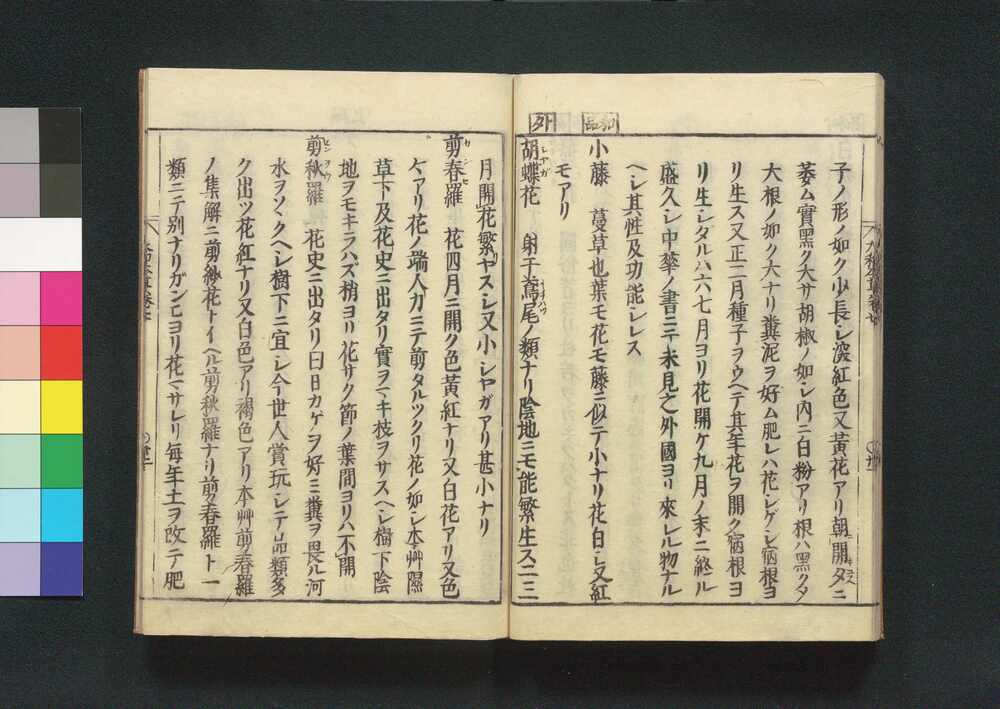 子ノ形ノ如ク少長シ深紅色又黄花アリ朝開夕ニ
萎ム實黒ク大サ胡椒ノ如シ内ニ白粉アリ根ハ黒クタ
大根ノ如ク大ナリ糞泥ヲ好ム肥レハ花シゲシ宿根ヨ
リ生ス又正二月種子ヲウヘテ其年花ヲ開ク宿根ヨ
リ生シタルハ六七月ヨリ花開ケ九月ノ末ニ終ル
盛久シ中華ノ書ニテ未見之外國ヨリ來レル物ナル
ヘシ其性及功能シレス
小藤 蔓草也葉モ花モ藤ニ似テ小ナリ花白シ又紅
モアリ
外 胡蝶花 シヤガ 射干鳶尾ノ類ナリ陰地ニモ能繁生ス二三
月開花繁ヤスシ又小シヤガアリ甚小ナリ
剪春羅 ガンヒ 花四月ニ開ク色黄紅ナリ又白花アリ又色
々アリ花ノ端人力ニテ剪タルツクリ花ノ如シ本艸隰
草下及花史ニ出タリ實ヲマキ枝ヲサスヘシ樹下陰
地ヲモキラハズ梢ヨリ花サク節ノ葉間ヨリハ不開
剪秋羅 センヲウ 花史ニ出タリ曰日カゲヲ好ミ糞ヲ畏ル河
水ヲソヽクヘシ樹下ニ宜シ今世人賞玩シテ品類多
ク出ツ花紅ナリ又白色アリ褐色アリ本艸剪春羅
ノ集解ニ剪紗花トイヘル剪秋羅ナリ剪春羅ト一
類ニテ別ナリガンヒヨリ花マサレリ毎年土ヲ改テ肥